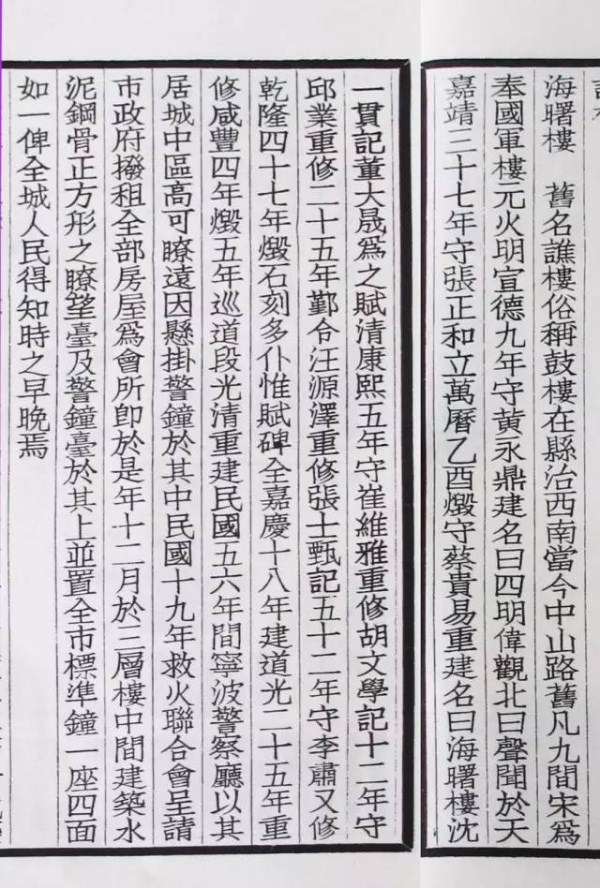 海曙樓　舊名譙樓俗稱鼓樓在縣治西南當今中山路舊凡九間宋爲
奉國軍樓元火明宣德九年守黃永鼎建名曰四明偉觀北曰聲聞於天
嘉靖三十七年守張正和立萬曆乙酉燬守蔡貴易重建名曰海曙樓沈
一貫記董大晟爲之賦清康熙五年守崔維雅重修胡文學記十二年守
邱業重修二十五年鄞令汪源澤重修張士甄記五十二年守李肅又修
乾隆四十七年燬石刻多仆惟賦碑全嘉慶十八年建道光二十五年重
修咸豐四年燬五年巡道段光清重建民國五六年間寧波警察廳以其
居城中區高可瞭遠因懸掛警鐘於其中民國十九年救火聯合會呈請
市政府撥租全部房屋爲會所卽於是年十二月於三層樓中間建築水
泥鋼骨正方形之瞭望臺及警鐘臺於其上並置全市標準鐘一座四面
如一俾全城人民得知時之早晚焉